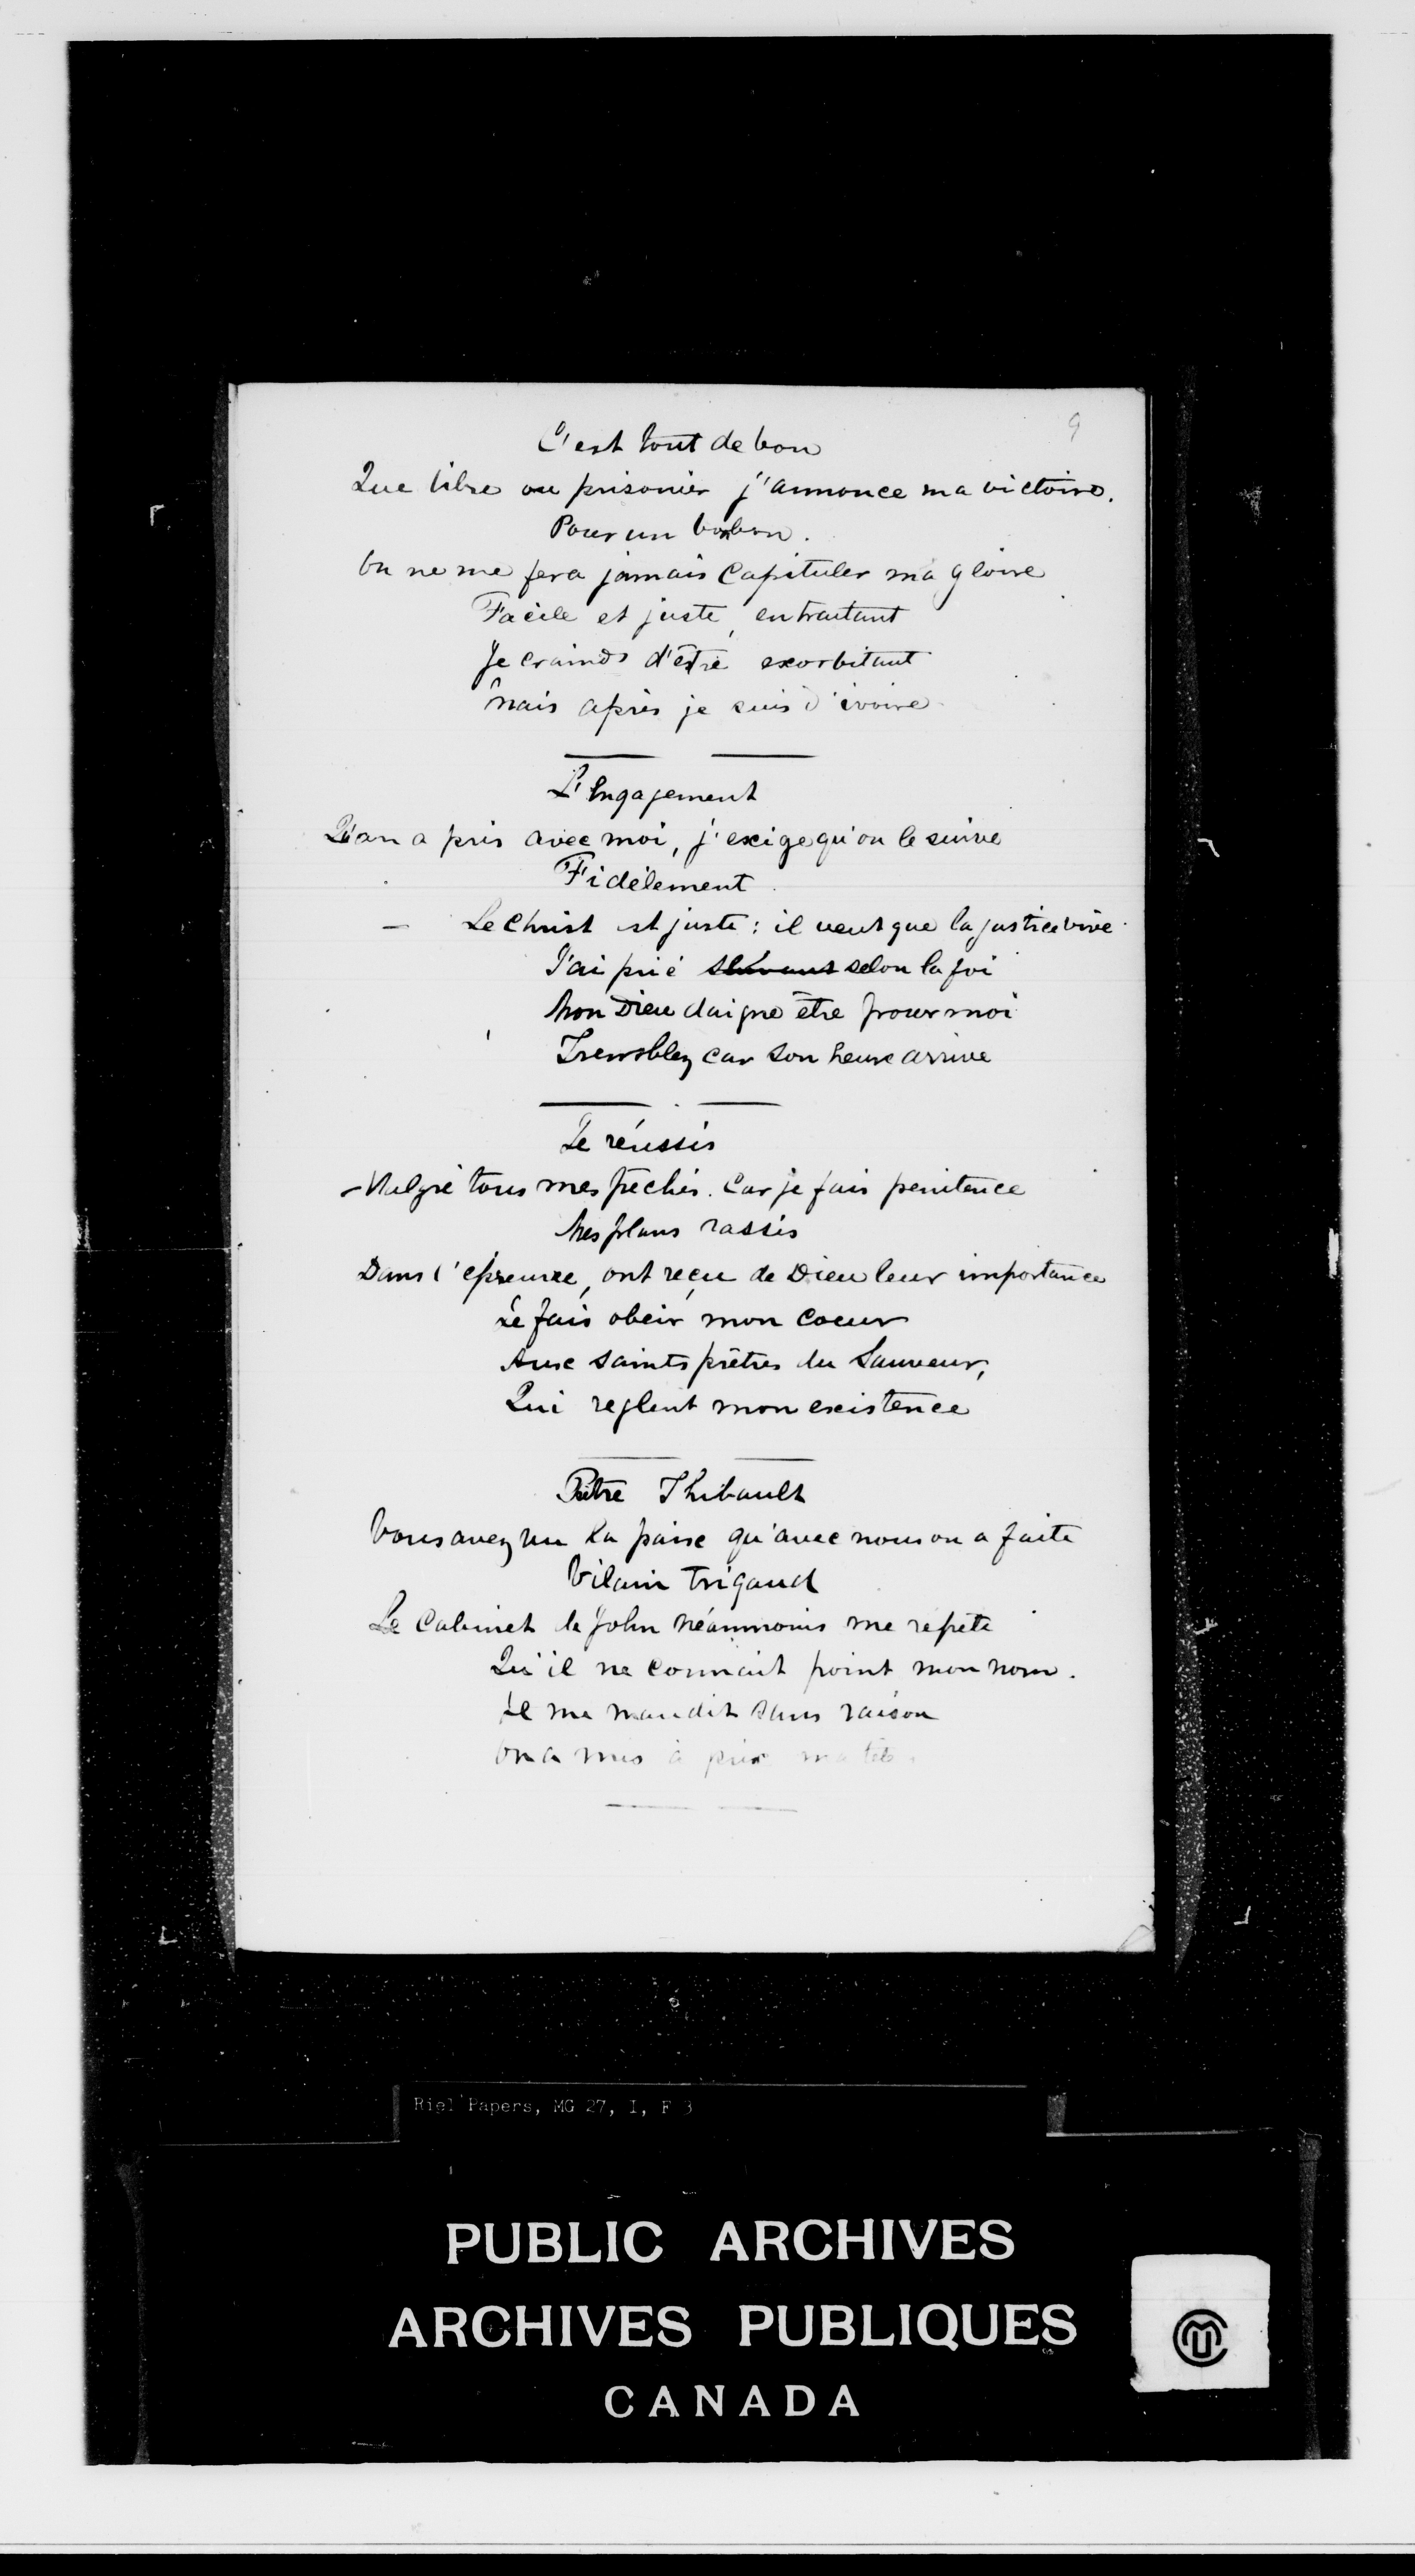 9
C'est tout de bon
Que libre ou prisonier j'annonce ma victoire.
Pour un bonbon.
On ne me fera jamais capituler ma gloire
Facile et juste, en traitant
Je crains d'être exorbitant
Mais après je suis d'ivoire.
L'Engagement
Qu'on a pris avec moi, j'exige qu'on le suive
Fidèlement.
— Le Christ est juste: il veut que la justice vive.
J'ai prié selon la foi
Mon Dieu daigne être pour moi
Tremblez car son heure arrive
Je réussis
Malgré tous mes péchés. Car je fais penitence
Mes plans rassis
Dans l'épreuve, ont reçu de Dieu leur importance
Je fais obéir mon coeur
Aux saints prêtres du Sauveur,
Qui reglent mon existence
Prêtre Thibault
Vous avez vu la paix qu'avec nous on a faite
Vilain Trigaud
Le Cabinet de John néanmoins me repète
Qu'il ne connait point mon nom.
Il me maudit sans raison
On a mis à prix ma tête.
Riel Papers, MG 27, I, F 3
PUBLIC ARCHIVES
ARCHIVES PUBLIQUES
CANADA